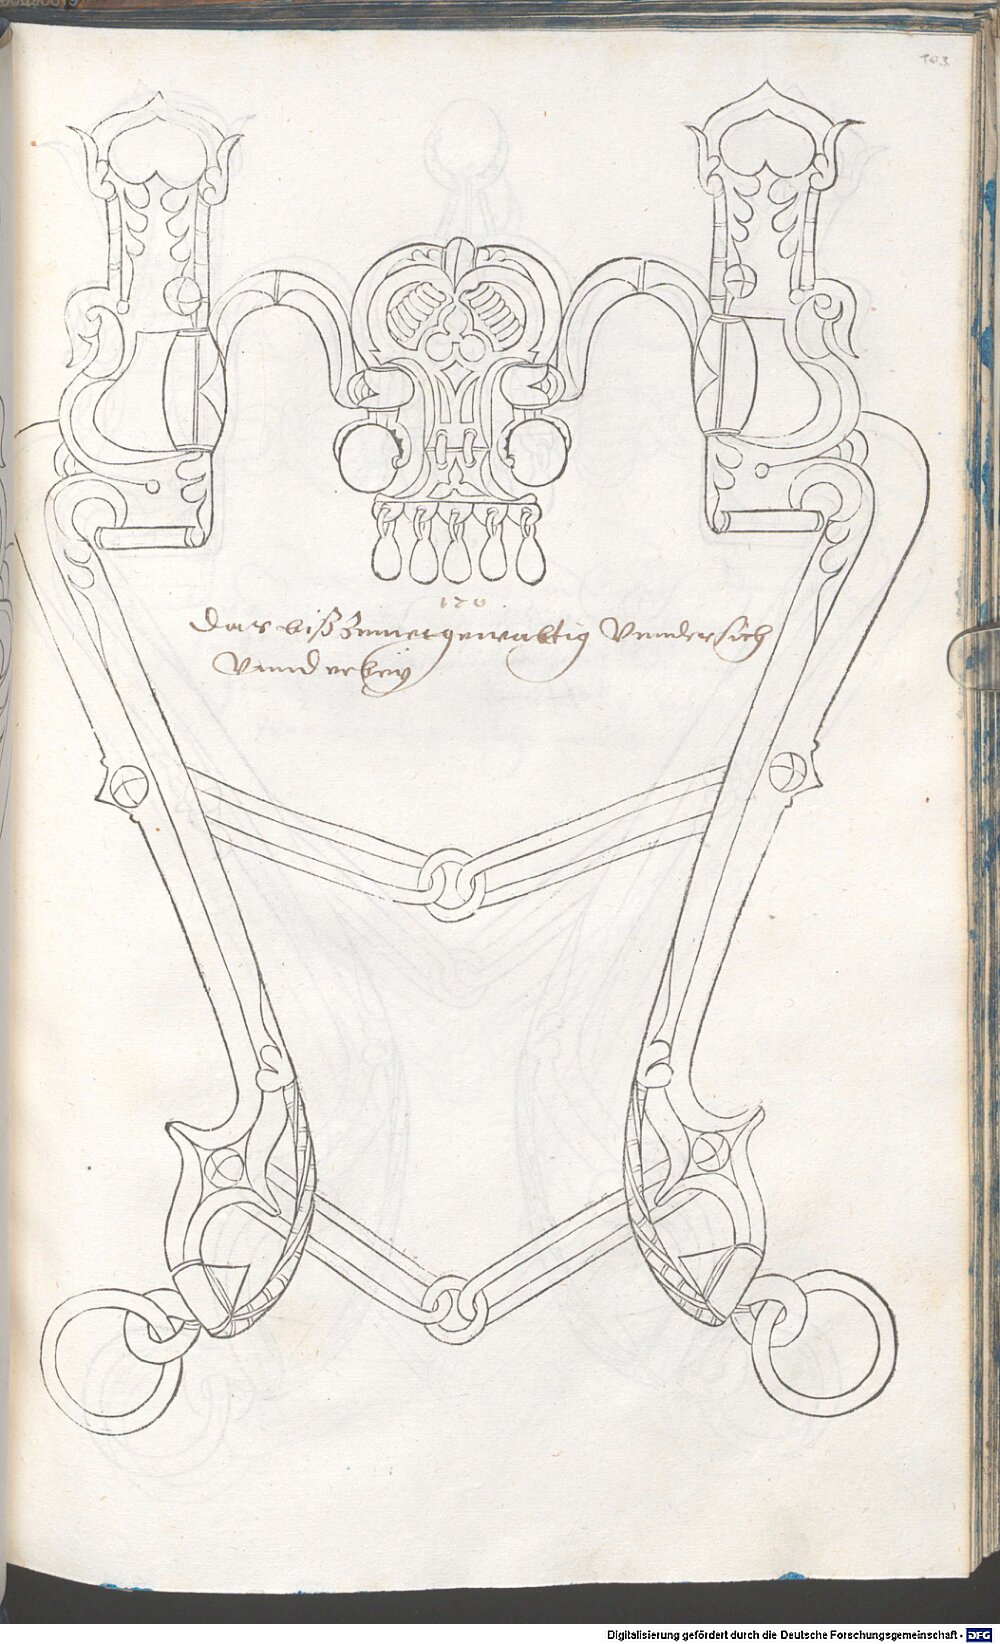 103
170
das biß Zeimet gewaltig Unnder sich
Unnd erkeÿ
Digitalisierung gefördert durch die Deutsche Forschungsgemeinschaft - DFG